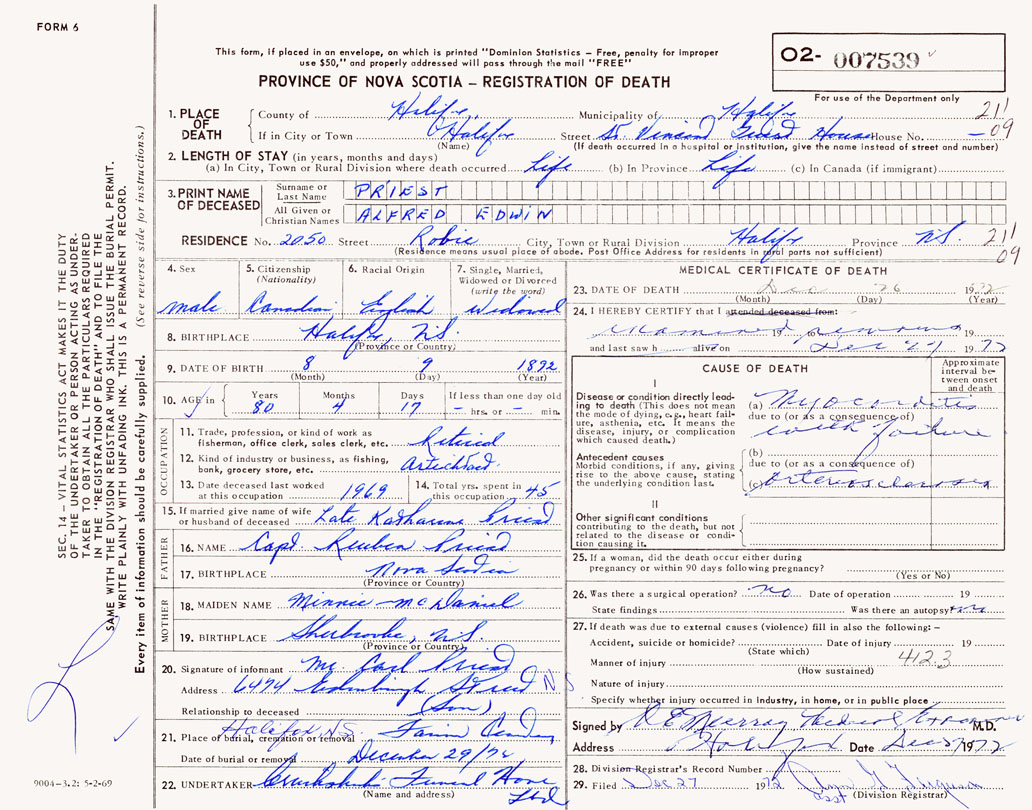 FORM 6
This form, if placed in an envelope, on which is printed "Dominion Statistics – Free, penalty for improper
use $50," and properly addressed will pass through the mail "FREE"
PROVINCE OF NOVA SCOTIA – REGISTRATION OF DEATH
O2- 007539
For use of the Department only
1. PLACE OF DEATH
County of Halifax Municipality of Halifax 211
If in City or Town Halifax Street St. Vincent House House No. – 09
(Name) (If death occurred in a hospital or institution, give the name instead of street and number)
2. LENGTH OF STAY (in years, months and days)
(a) In City, Town or Rural Division where death occurred Life (b) In Province Life (c) In Canada (if immigrant)
3. PRINT NAME OF DECEASED
Surname or Last Name PRIEST
All Given or Christian Names ALFRED EDWIN
RESIDENCE No. 2050 Street Robie City, Town or Rural Division Halifax Province N.S. 211
(Residence means usual place of abode. Post Office Address for residents in rural parts not sufficient) 09
4. Sex
male
5. Citizenship (Nationality)
Canadian
6. Racial Origin
English
7. Single, Married, Widowed or Divorced (write the word)
Widowed
8. BIRTHPLACE Halifax, N.S.
(Province or Country)
9. DATE OF BIRTH 8 9 1892
(Month) (Day) (Year)
10. AGE in Years Months Days If less than one day old
80 4 17 – hrs. or – min.
OCCUPATION
11. Trade, profession, or kind of work as
fisherman, office clerk, sales clerk, etc. Retired
12. Kind of industry or business, as fishing,
bank, grocery store, etc.
13. Date deceased last worked
at this occupation 1969
14. Total yrs. spent in
this occupation 45
15. If married give name of wife
or husband of deceased Late Katharine Priest
FATHER
16. NAME Capt. Reuben Priest
17. BIRTHPLACE Nova Scotia
(Province or Country)
MOTHER
18. MAIDEN NAME Minnie McDaniel
19. BIRTHPLACE Sherbrooke, N.S.
(Province or Country)
20. Signature of informant Mr. Carl Priest
Address 6494 Edinburgh Street N S
Relationship to deceased (Son)
21. Place of burial, cremation or removal Halifax N.S.
Date of burial or removal December 29/72
22. UNDERTAKER Cruikshanks Funeral Home Ltd
(Name and address)
MEDICAL CERTIFICATE OF DEATH
23. DATE OF DEATH Dec 26 1972
(Month) (Day) (Year)
24. I HEREBY CERTIFY that I attended deceased from:
examined 19 remains 19
and last saw h alive on Dec 27 1972
CAUSE OF DEATH
Approximate interval between onset and death
I
Disease or condition directly leading to death (This does not mean the mode of dying, e.g., heart failure, asthenia, etc. It means the disease, injury, or complication which caused death.)
(a) Myocarditis
due to (or as a consequence of)
with failure
Antecedent causes
Morbid conditions, if any, giving rise to the above cause, stating the underlying condition last.
(b)
due to (or as a consequence of)
(c) arteriosclerosis
II
Other significant conditions
contributing to the death, but not related to the disease or condition causing it.
25. If a woman, did the death occur either during
pregnancy or within 90 days following pregnancy?
(Yes or No)
26. Was there a surgical operation? no Date of operation 19
State findings Was there an autopsy? no
27. If death was due to external causes (violence) fill in also the following: –
Accident, suicide or homicide? Date of injury 19
(State which) 412.3
Manner of injury
(How sustained)
Nature of injury
Specify whether injury occurred in industry, in home, or in public place
Signed by R E Murray Medical Examiner M.D.
Address Halifax Date Dec 1972
28. Division Registrar's Record Number
29. Filed Dec 27 1972
asst (Division Registrar)
SEC. 14 – VITAL STATISTICS ACT MAKES IT THE DUTY
OF THE UNDERTAKER OR PERSON ACTING AS UNDER-
TAKER TO OBTAIN ALL THE PARTICULARS REQUIRED
IN THE "REGISTRATION OF DEATH" AND TO FILE THE
SAME WITH THE DIVISION REGISTRAR WHO SHALL ISSUE THE BURIAL PERMIT.
WRITE PLAINLY WITH UNFADING INK. THIS IS A PERMANENT RECORD.
Every item of information should be carefully supplied. (See reverse side for instructions.)
9004-3.2: 5-2-69